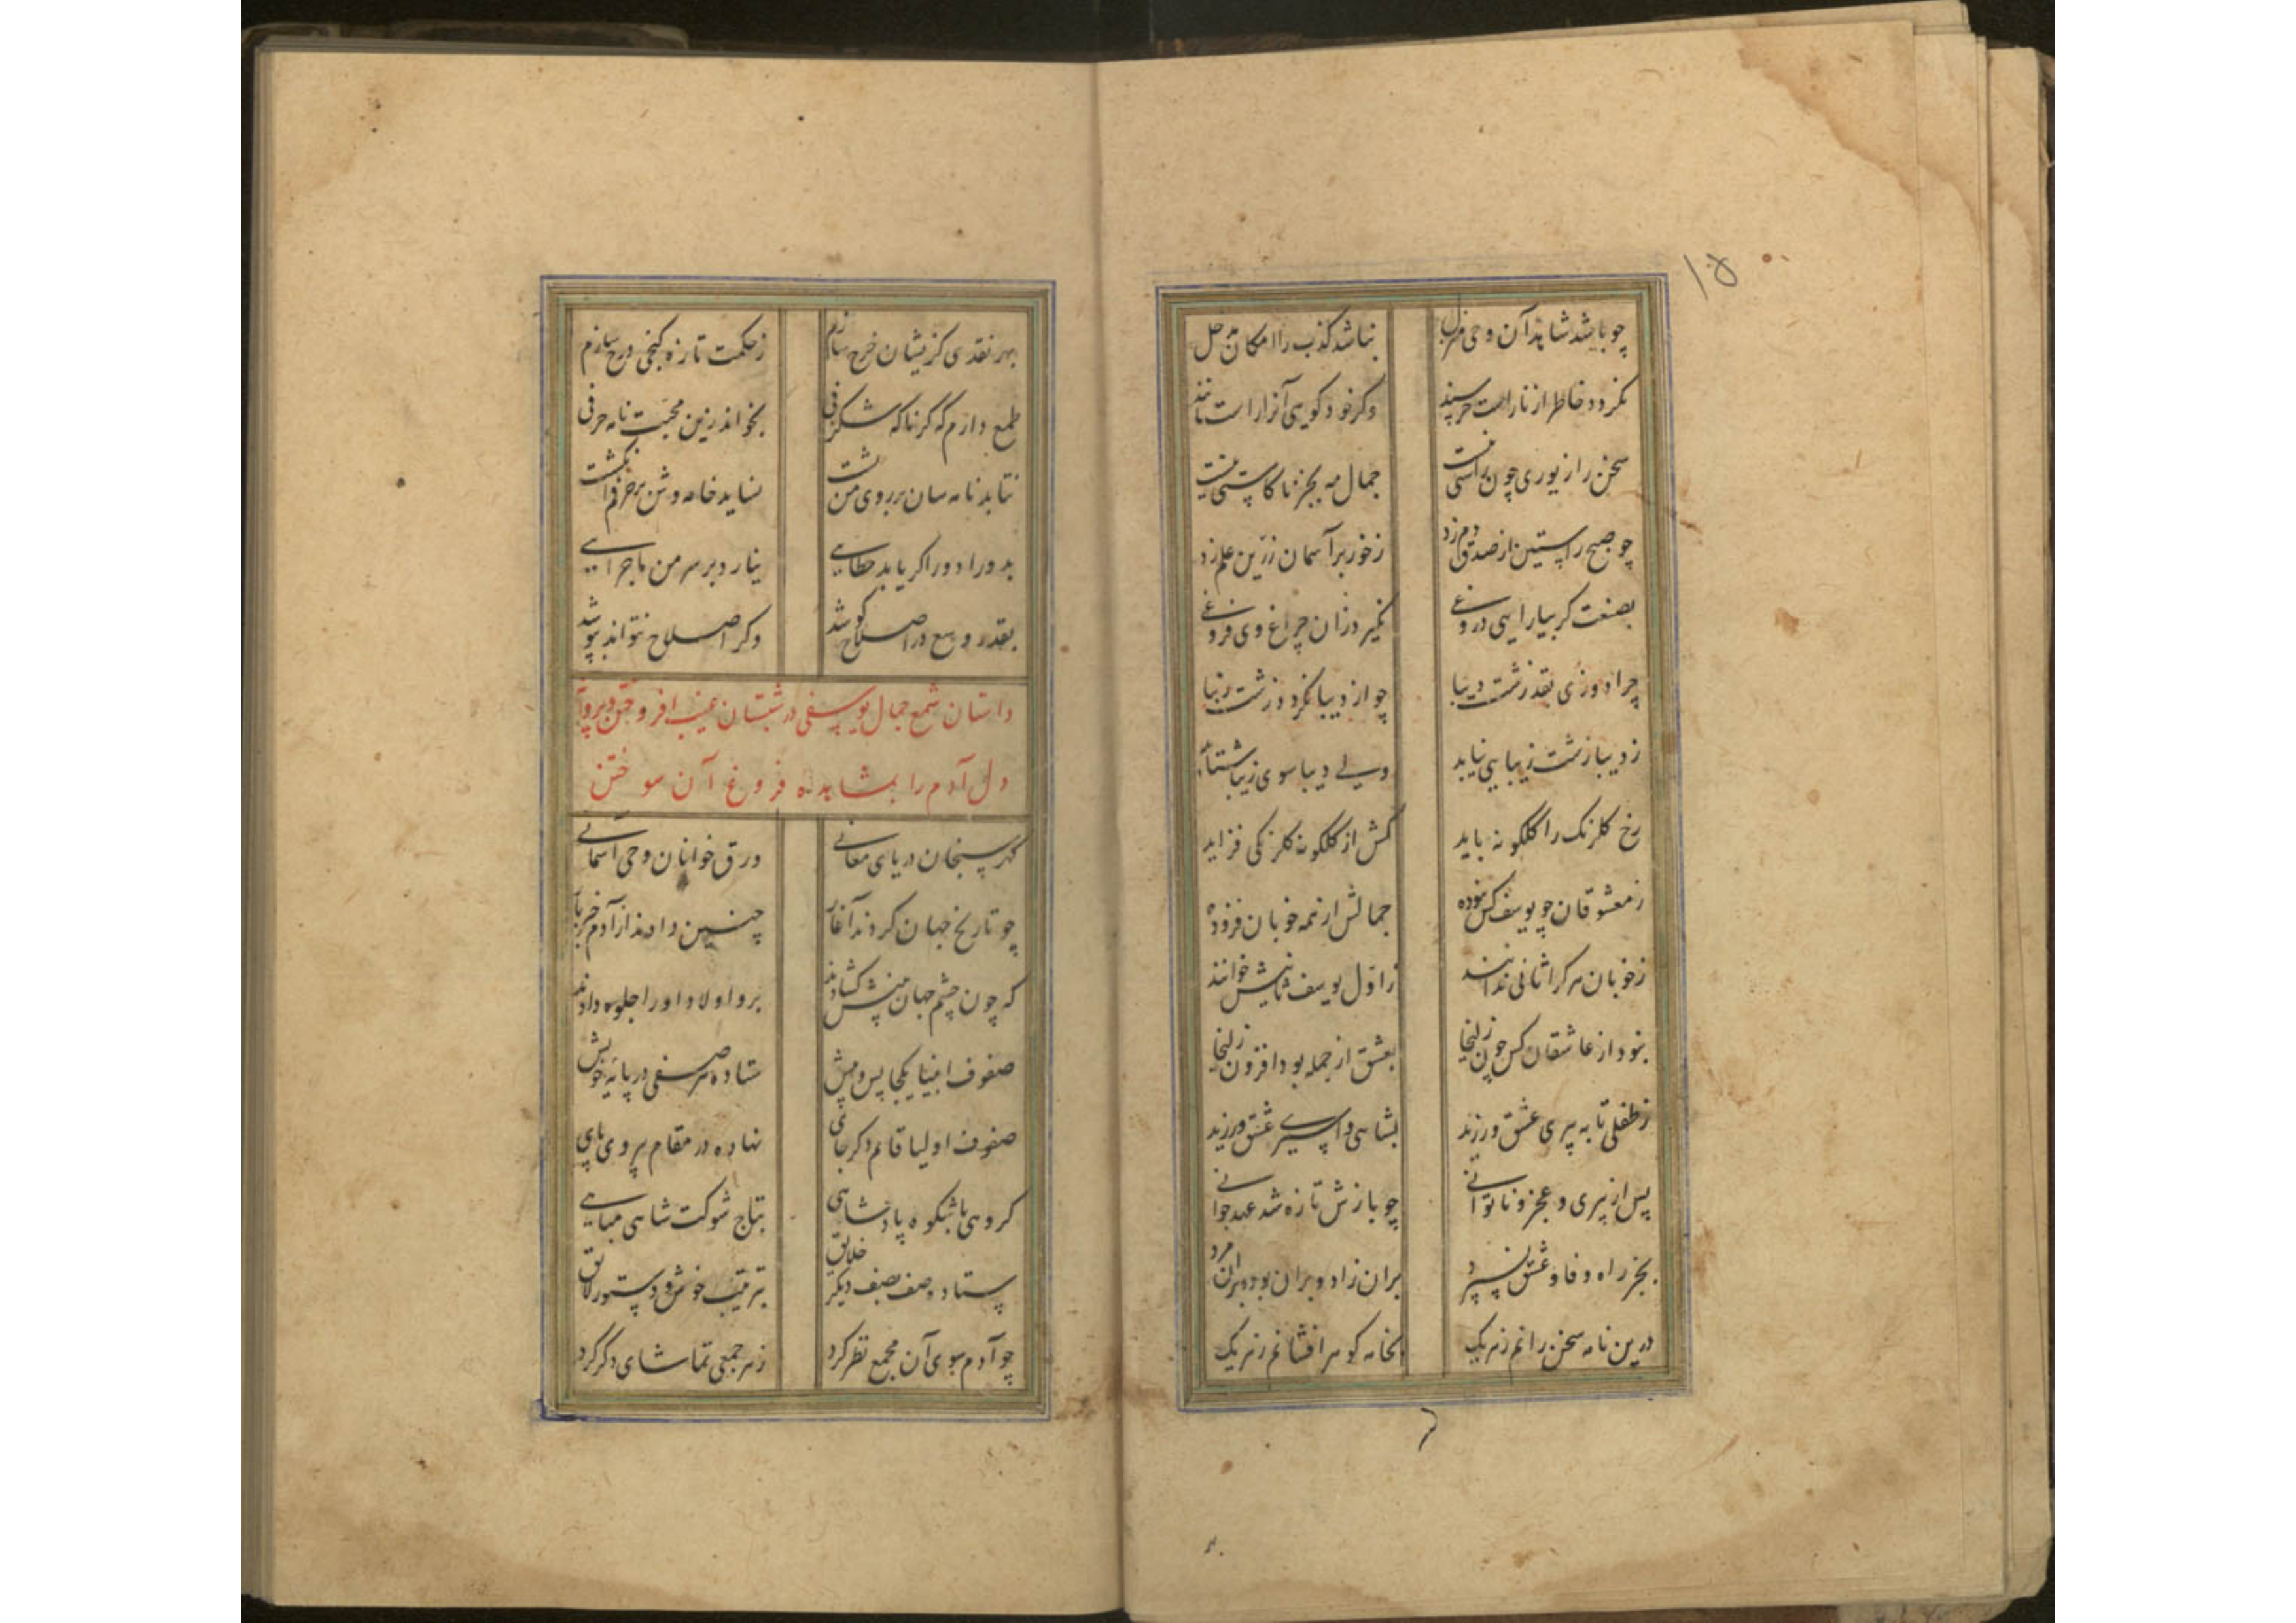 ۱۵
چو باشد شاید آن وحی منزل نباشد کذب را امکان مدخل
نکردد خاطر از ناراست خرسند وکر خود کویی آنرا راست مانند
سخن را زیوری چون راستی نیست جمال مه بجز ناکاستی نیست
چو صبح راستین از صدق دم زد ز خور بر آسمان زرین علم زد
بصنعت کر بیارایی دروغی نکیرد زان چراغ وی فروغی
چرا دوزی بقد زشت دیبا چو از دیبا نکردد زشت زیبا
ز دیبا زشت زیبایی نیابد ولی دیبا سوی زیبا شتابد
رخ کلرنک را کلکونه باید کش از کلکونه کلرنکی فزاید
ز معشوقان چو یوسف کس نبوده جمالش از همه خوبان فزوده
ز خوبان هر کرا ثانی ندانند ز اول یوسف ثانیش خوانند
نبود از عاشقان کس چون زلیخا بعشق از جمله بود افزون زلیخا
ز طفلی تا به پیری عشق ورزید بشاهی و اسیری عشق ورزید
پس از پیری و عجز و ناتوانی چو بازش تازه شد عهد جوانی
بجز راه وفا و عشق نسپرد بر آن زاد و بر آن بود و بر آن مرد
درین نامه سخن رانم ز هر یک بخامه کوهر افشانم ز هر یک
بهر نقدی کزیشان خرج سازم ز حکمت تازه کنجی درج سازم
طمع دارم که کر ناکه شکرفی بخواند زین محبت نامه حرفی
نتابد نامه سان بر روی من پشت نساید خامه وش بر حرفم انکشت
بدورادور اکر یابد خطایی نیارد بر سر من ماجرایی
بقدر وسع در اصلاح کوشد وکر اصلاح نتواند بپوشد
داستان شمع جمال یوسفی در شبستان غیب افروختن و پروانه
دل آدم را بمشاهده فروغ آن سوختن
کهر سنجان دریای معانی ورق خوانان وحی آسمانی
چو تاریخ جهان کردند آغاز چنین دادند از آدم خبر باز
که چون چشم جهان بینش کشادند برو اولاد او را جلوه دادند
صفوف انبیا یکجا پس و پیش ستاده هر صفی در پایه خویش
صفوف اولیا قائم دکر جای نهاده در مقام پیروی پای
کروهی باشکوه پادشاهی بتاج شوکت شاهی مباهی
ستاده صف بصف دیکر خلایق بترتیب خوش و دستور لایق
چو آدم سوی آن مجمع نظر کرد ز هر جمعی تماشای دکر کرد